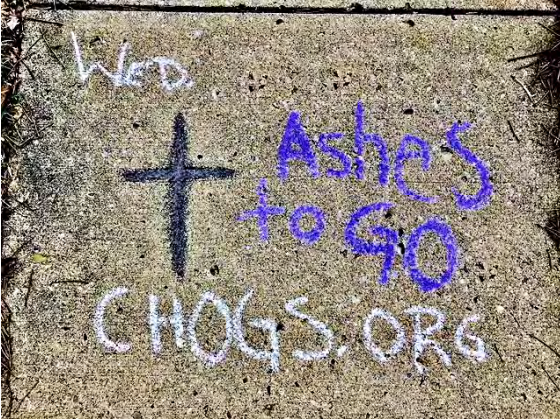 WED.
Ashes
to GO
CHOGS.ORG